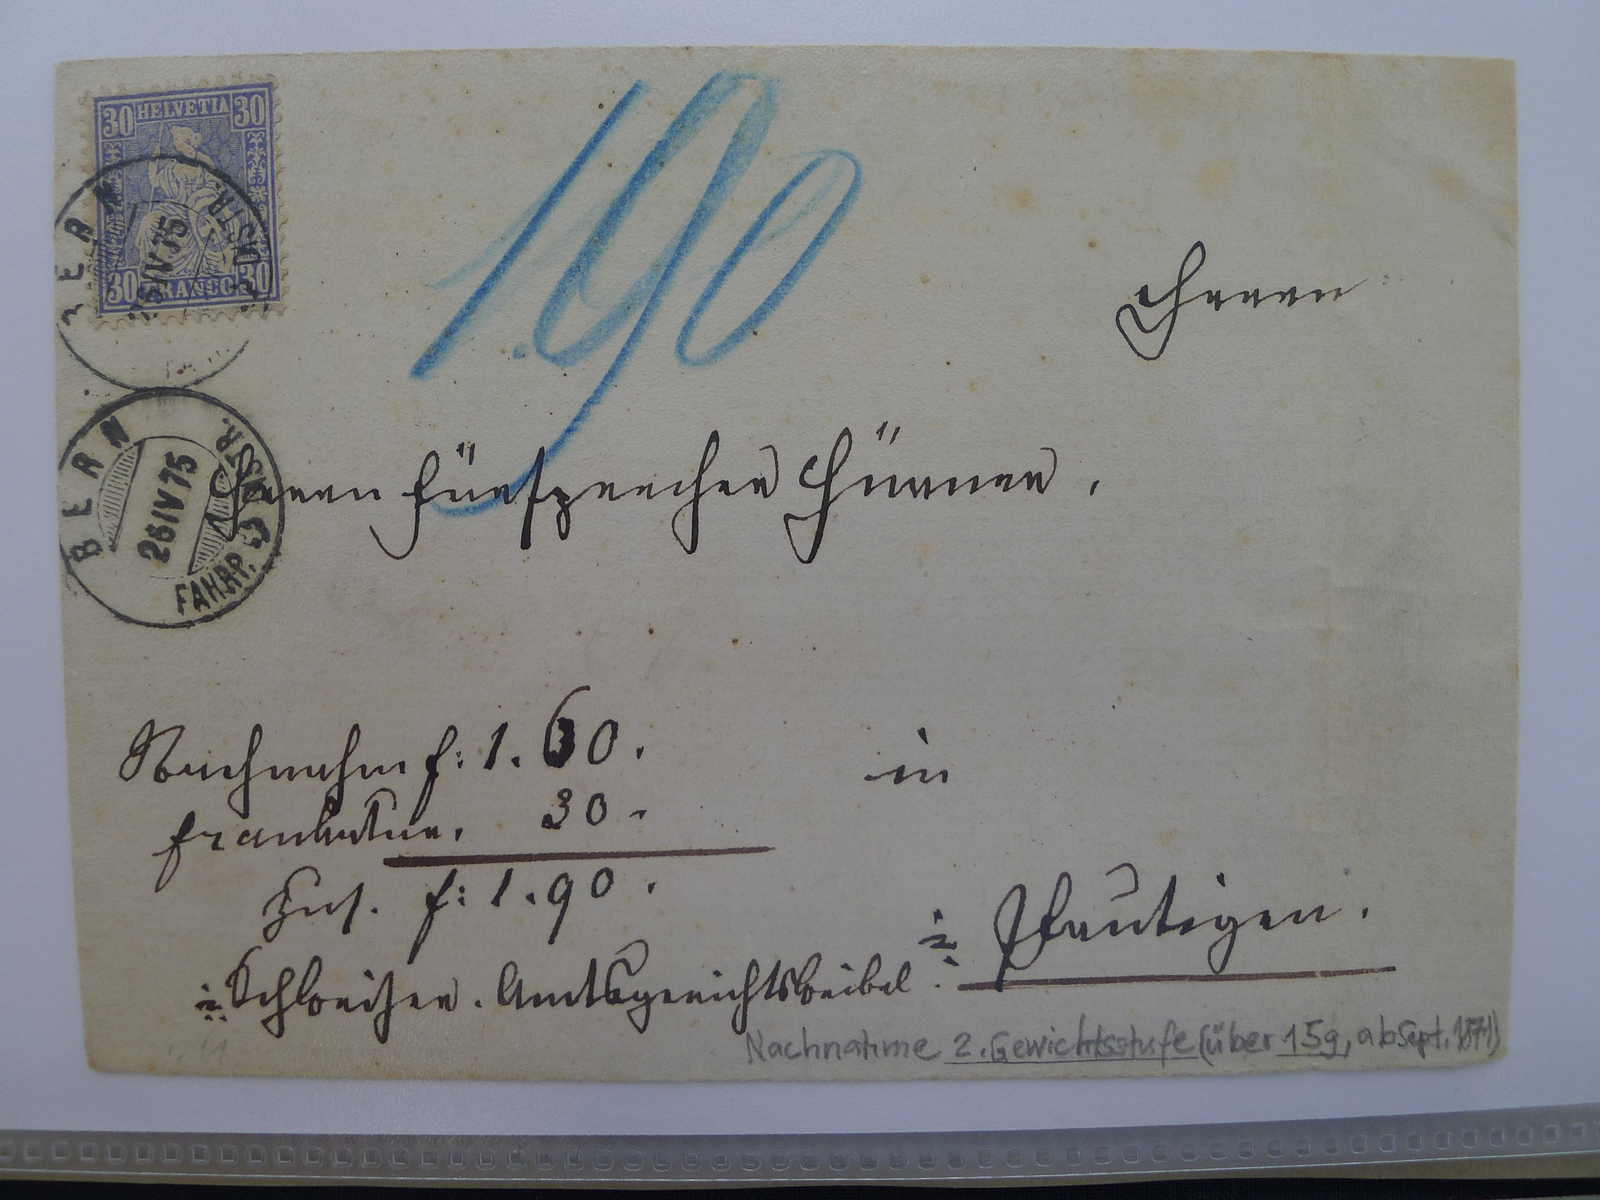 30 HELVETIA 30
30 FRANCO 30
BERN
26 IV 75
BERN
26 IV 75
FAHRP.
1.90
Herrn
Herrn Fürsprecher Hürner,
Nachnahme f: 1.60.
Frankatur. 30.
Zus. f: 1.90.
in
Amtsgerichtsweibel
Nachnahme 2. Gewichtsstufe (über 15g, ab Sept. 1871)